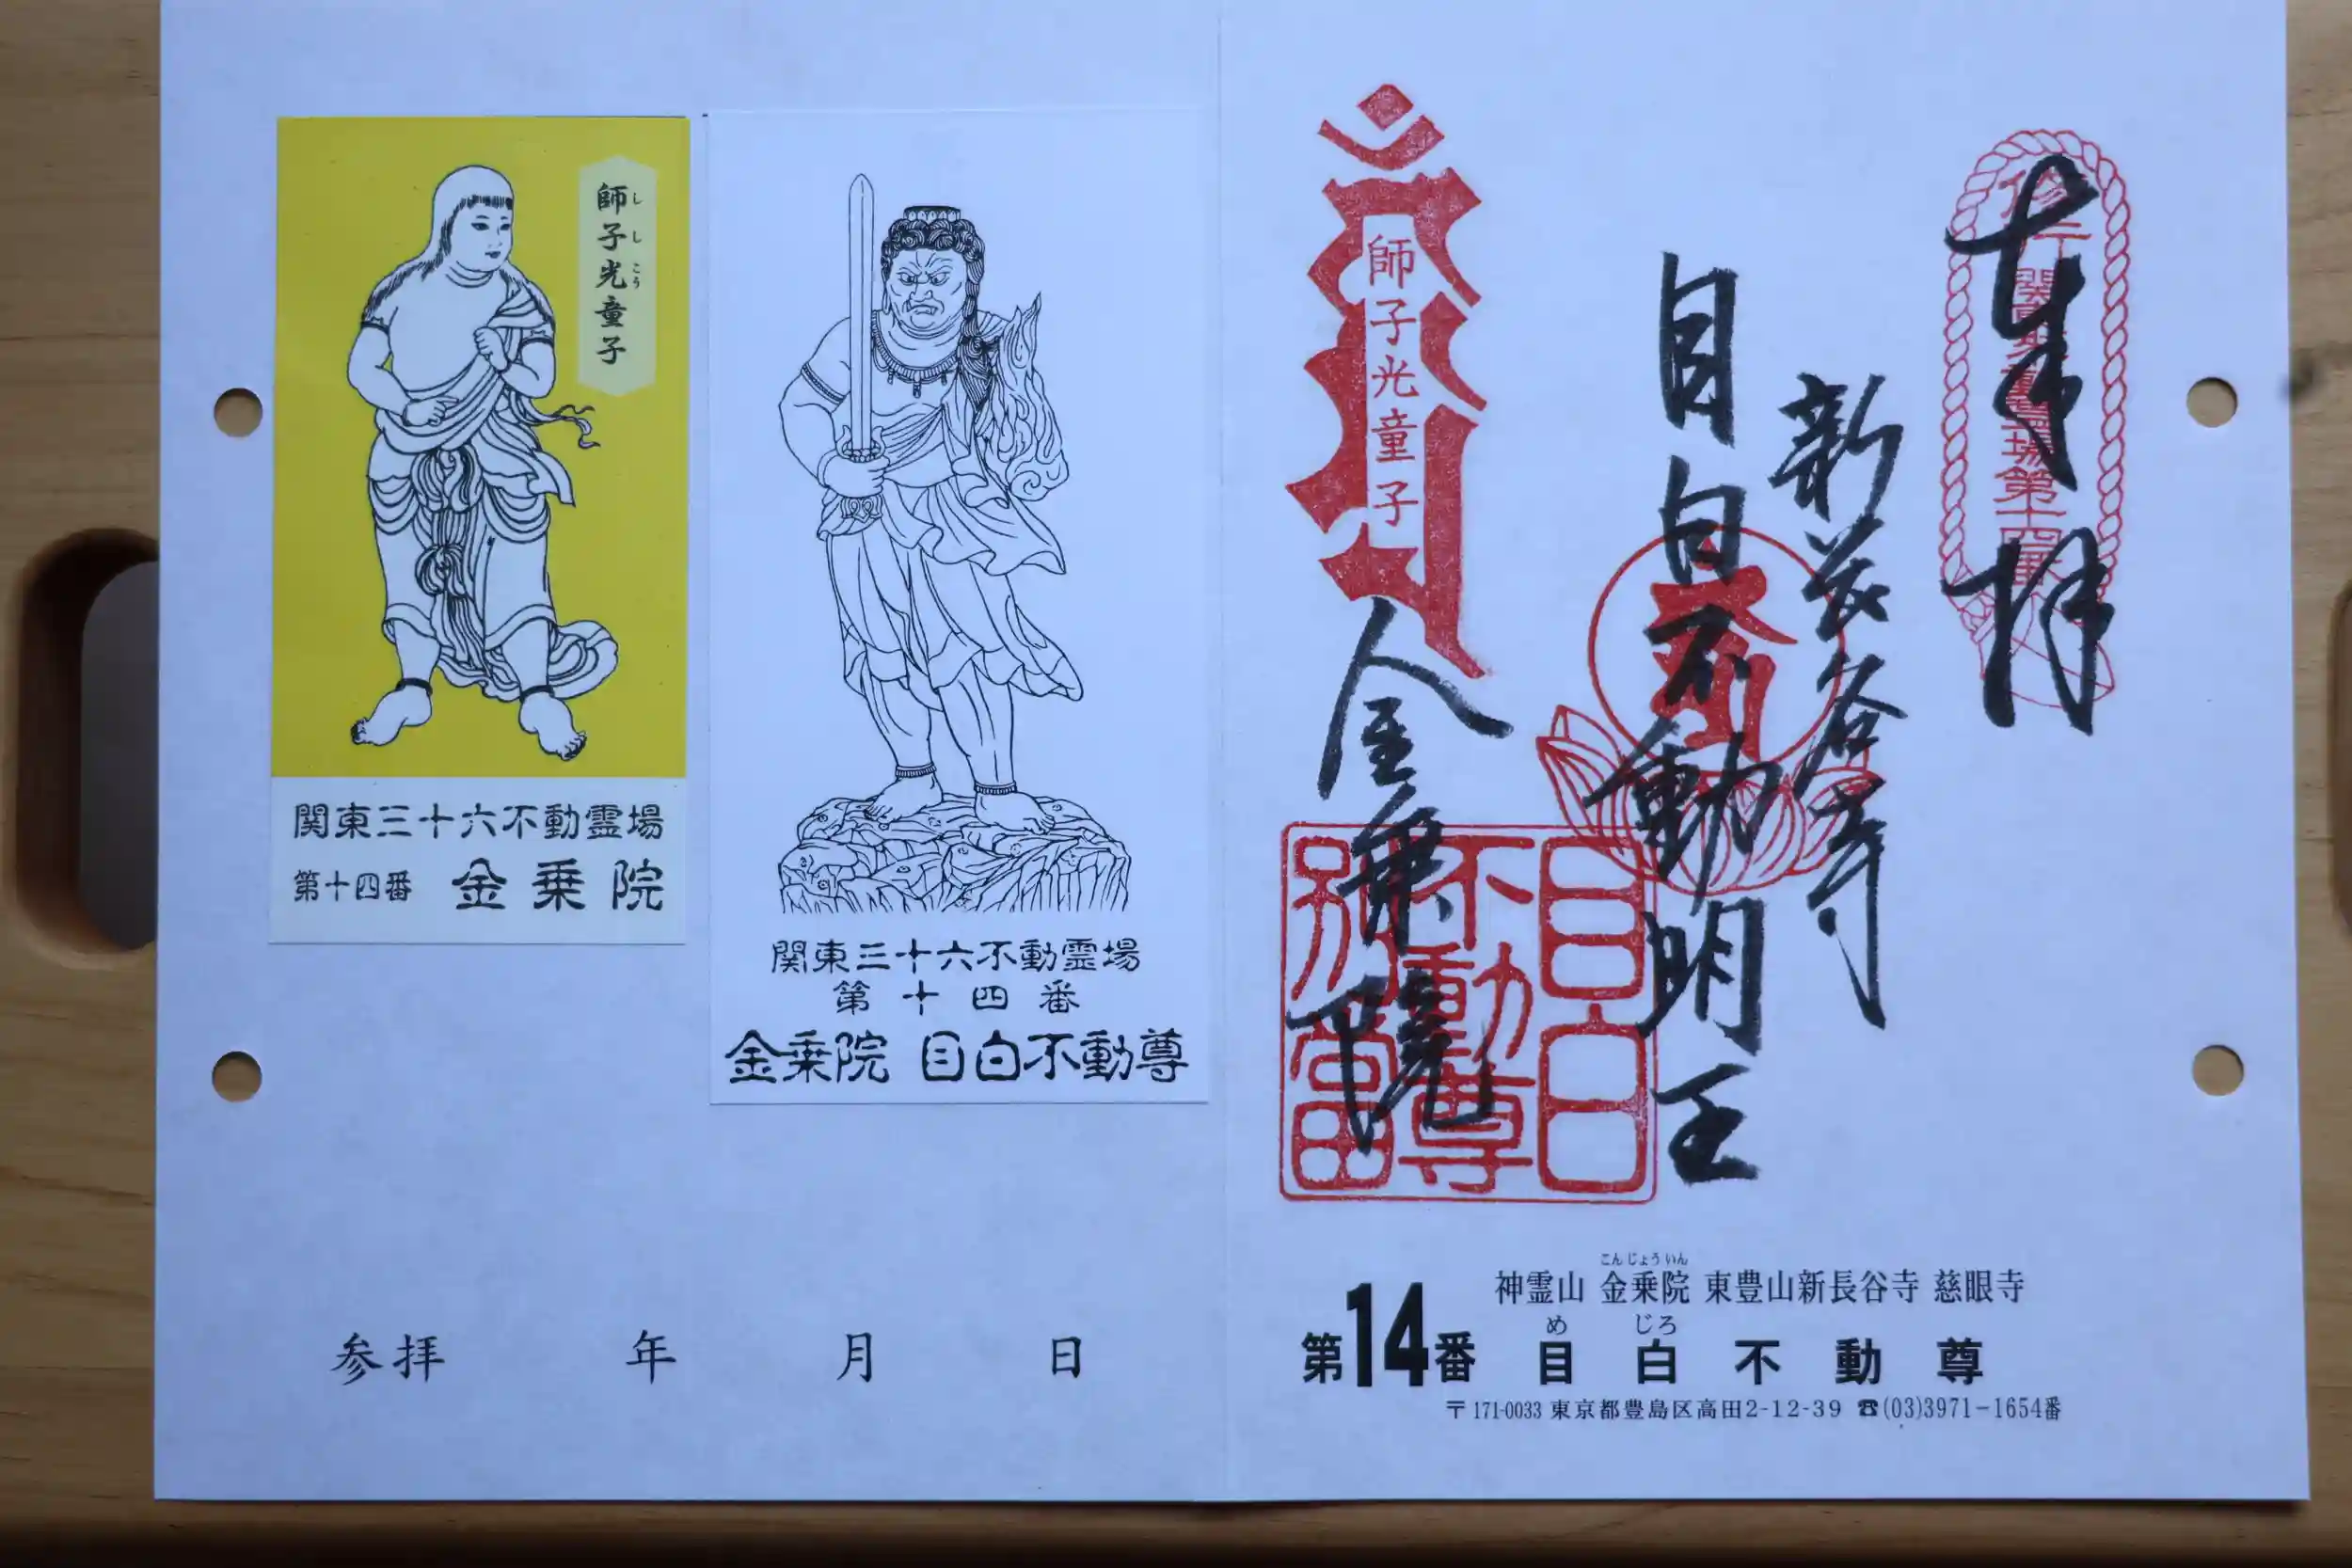 師子光童子
ししこう
関東三十六不動霊場
第十四番 金乗院
関東三十六不動霊場
第十四番
金乗院 目白不動尊
参拝 年 月 日
奉拝
関東三十六不動霊場第十四番
新長谷寺
目白不動明王
師子光童子
金乗院
目白
不動尊
別當
こんじょういん
神霊山 金乗院 東豊山新長谷寺 慈眼寺
めじろ
第14番 目白不動尊
〒171-0033 東京都豊島区高田2-12-39 ☎(03)3971-1654番